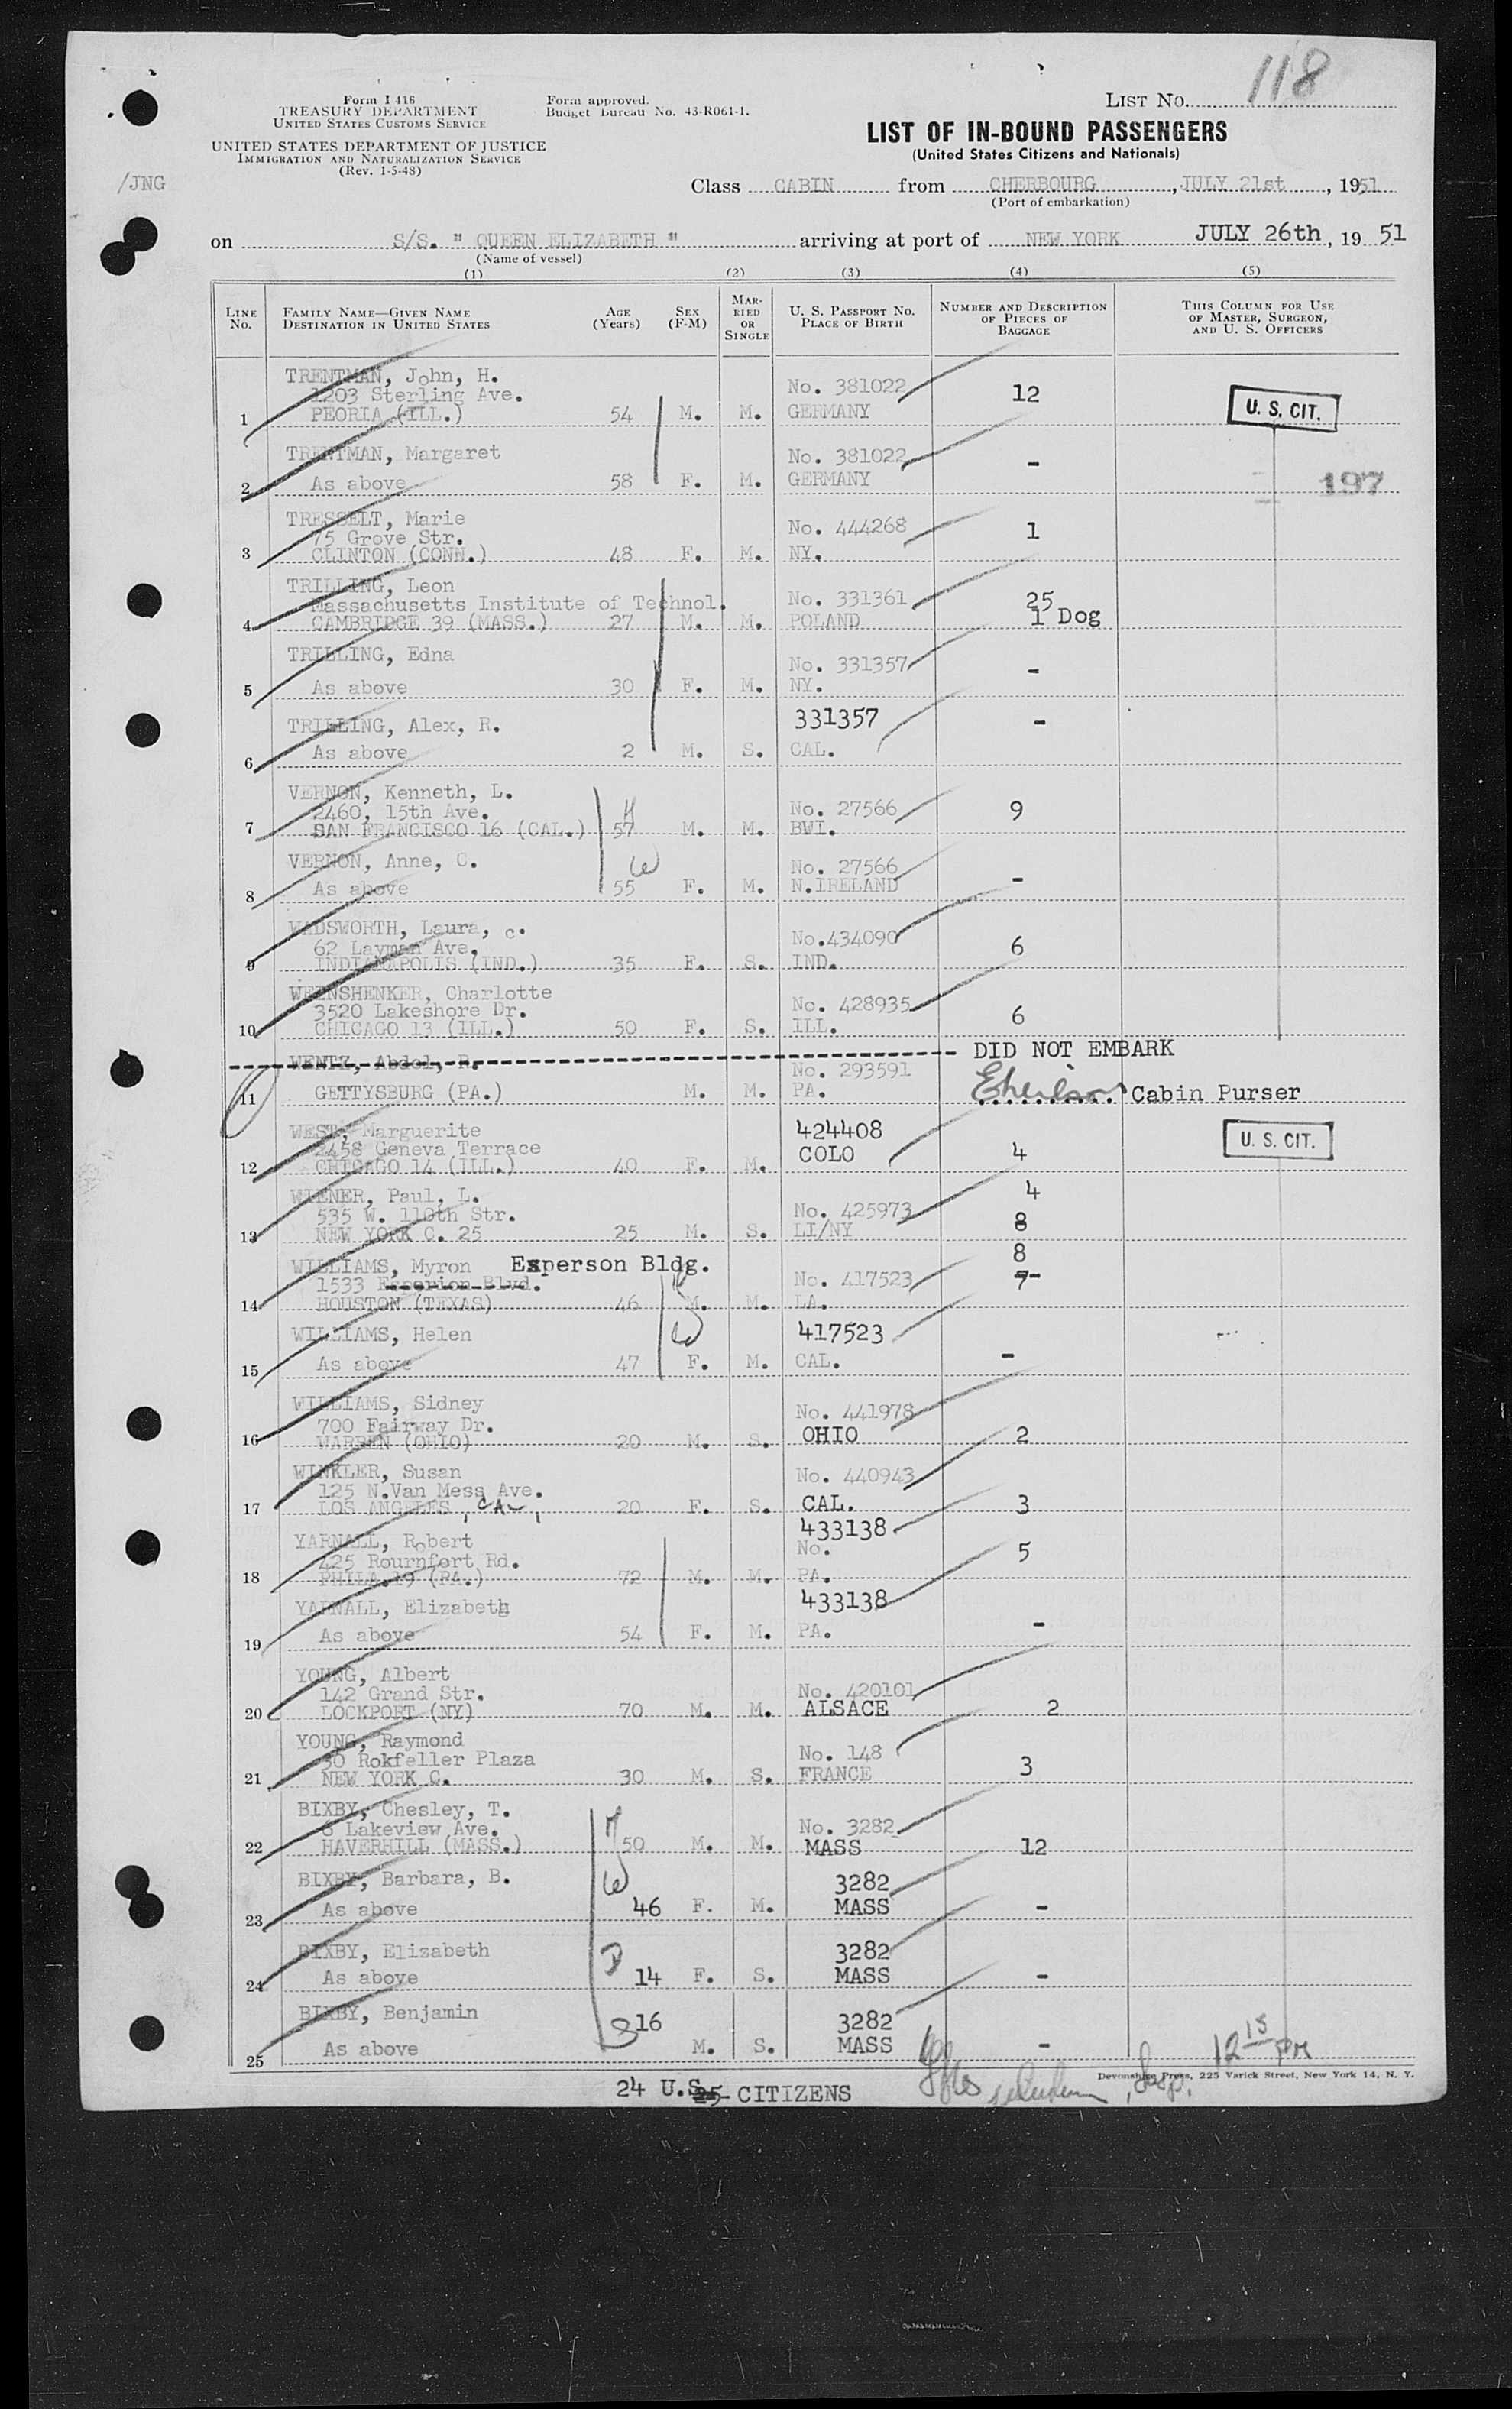 118
Form I 416
TREASURY DEPARTMENT
UNITED STATES CUSTOMS SERVICE
UNITED STATES DEPARTMENT OF JUSTICE
IMMIGRATION AND NATURALIZATION SERVICE
(Rev. 1-5-48)
Form approved.
Budget Bureau No. 43-R061-1.
LIST No.
LIST OF IN-BOUND PASSENGERS
(United States Citizens and Nationals)
/JNG
Class CABIN from CHERBOURG, JULY 21st, 1951
(Port of embarkation)
on S/S. " QUEEN ELIZABETH " arriving at port of NEW YORK JULY 26th, 19 51
(Name of vessel)
(1) (2) (3) (4) (5)
LINE No. FAMILY NAME—GIVEN NAME DESTINATION IN UNITED STATES AGE (Years) SEX (F-M) MARRIED OR SINGLE U. S. PASSPORT No. PLACE OF BIRTH NUMBER AND DESCRIPTION OF PIECES OF BAGGAGE THIS COLUMN FOR USE OF MASTER, SURGEON, AND U. S. OFFICERS
TRENTMAN, John, H. No. 381022 12
1203 Sterling Ave. U. S. CIT.
1 PEORIA (ILL.) 54 M. M. GERMANY
TRENTMAN, Margaret No. 381022 -
2 As above 58 F. M. GERMANY 197
TRESSELT, Marie No. 444268 1
75 Grove Str.
3 CLINTON (CONN.) 48 F. M. NY.
TRILLING, Leon No. 331361 25
Massachusetts Institute of Technol.
4 CAMBRIDGE 39 (MASS.) 27 M. M. POLAND 1 Dog
TRILLING, Edna No. 331357 -
5 As above 30 F. M. NY.
TRILLING, Alex, R. 331357 -
6 As above 2 M. S. CAL.
VERNON, Kenneth, L. No. 27566 9
2460, 15th Ave. H
7 SAN FRANCISCO 16 (CAL.) 57 M. M. BWI.
VERNON, Anne, C. W No. 27566
8 As above 55 F. M. N.IRELAND -
WADSWORTH, Laura, c. No.434090 6
62 Layman Ave.
9 INDIANAPOLIS (IND.) 35 F. S. IND.
WEINSHENKER, Charlotte No. 428935 6
3520 Lakeshore Dr.
10 CHICAGO 13 (ILL.) 50 F. S. ILL.
WENTZ, Abdel, R. DID NOT EMBARK
No. 293591
11 GETTYSBURG (PA.) M. M. PA. Cabin Purser
WEST, Marguerite 424408 U. S. CIT.
2458 Geneva Terrace COLO 4
12 CHICAGO 14 (ILL.) 40 F. M.
WIENER, Paul, L. No. 425973 4
535 W. 110th Str. 8
13 NEW YORK C. 25 25 M. S. LI/NY
WILLIAMS, Myron Esperson Bldg. 8
1533 Esperion Blvd. No. 417523 7-
14 HOUSTON (TEXAS) 46 M. M. LA.
WILLIAMS, Helen W 417523
15 As above 47 F. M. CAL. -
WILLIAMS, Sidney No. 441978
700 Fairway Dr.
16 WARREN (OHIO) 20 M. S. OHIO 2
WINKLER, Susan No. 440943
125 N.Van Mess Ave.
17 LOS ANGELES, CAL, 20 F. S. CAL. 3
YARNALL, Robert 433138
425 Rournfort Rd. No. 5
18 PHILA.19 (PA.) 72 M. M. PA.
YARNALL, Elizabeth 433138
19 As above 54 F. M. PA. -
YOUNG, Albert No. 420101
142 Grand Str.
20 LOCKPORT (NY) 70 M. M. ALSACE 2
YOUNG, Raymond No. 148
30 Rokfeller Plaza
21 NEW YORK C. 30 M. S. FRANCE 3
BIXBY, Chesley, T. H No. 3282
6 Lakeview Ave.
22 HAVERHILL (MASS.) 50 M. M. MASS 12
BIXBY, Barbara, B. W 3282
23 As above 46 F. M. MASS -
BIXBY, Elizabeth D 3282
24 As above 14 F. S. MASS -
BIXBY, Benjamin S 16 3282
25 As above M. S. MASS - 12 15 PM
Devonshire Press, 225 Varick Street, New York 14, N. Y.
24 U.S. 25 CITIZENS